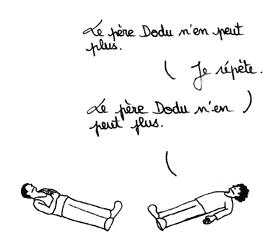 Le père Dodu n'en peut
plus.
Je répète.
Le père Dodu n'en
peut plus.